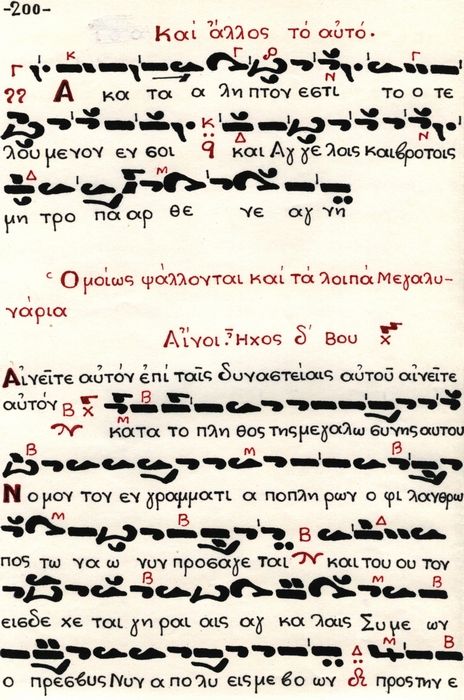 -200-
Καί ἄλλος τό αὐτό.
Α κα τα α λη πτον εστι το ο τε
λού μενον εν σοι και Αγ γέ λοις και βροτοις
μη τρο πα αρ θε νε αγ νη
Ὁμοίως ψάλλονται καί τά λοιπά Μεγαλυ-
νάρια
Αἶνοι. Ἦχος δ΄ Βου
Αἰνεῖτε αὐτόν ἐπί ταῖς δυναστείαις αὐτοῦ αἰνεῖτε
αὐτόν κατα το πλη θος της μεγαλω συνης αυτου
Νο μου τον εν γραμματι α ποπλη ρων ο φι λανθρω
πος τω να ω νυν προσαγε ται και του ου τον
εισδε χε ται γη ραι αις αγ κα λαις Συ με ων
ο πρεσβυς Νυν α πο λυ εις με βο ων προς την ε